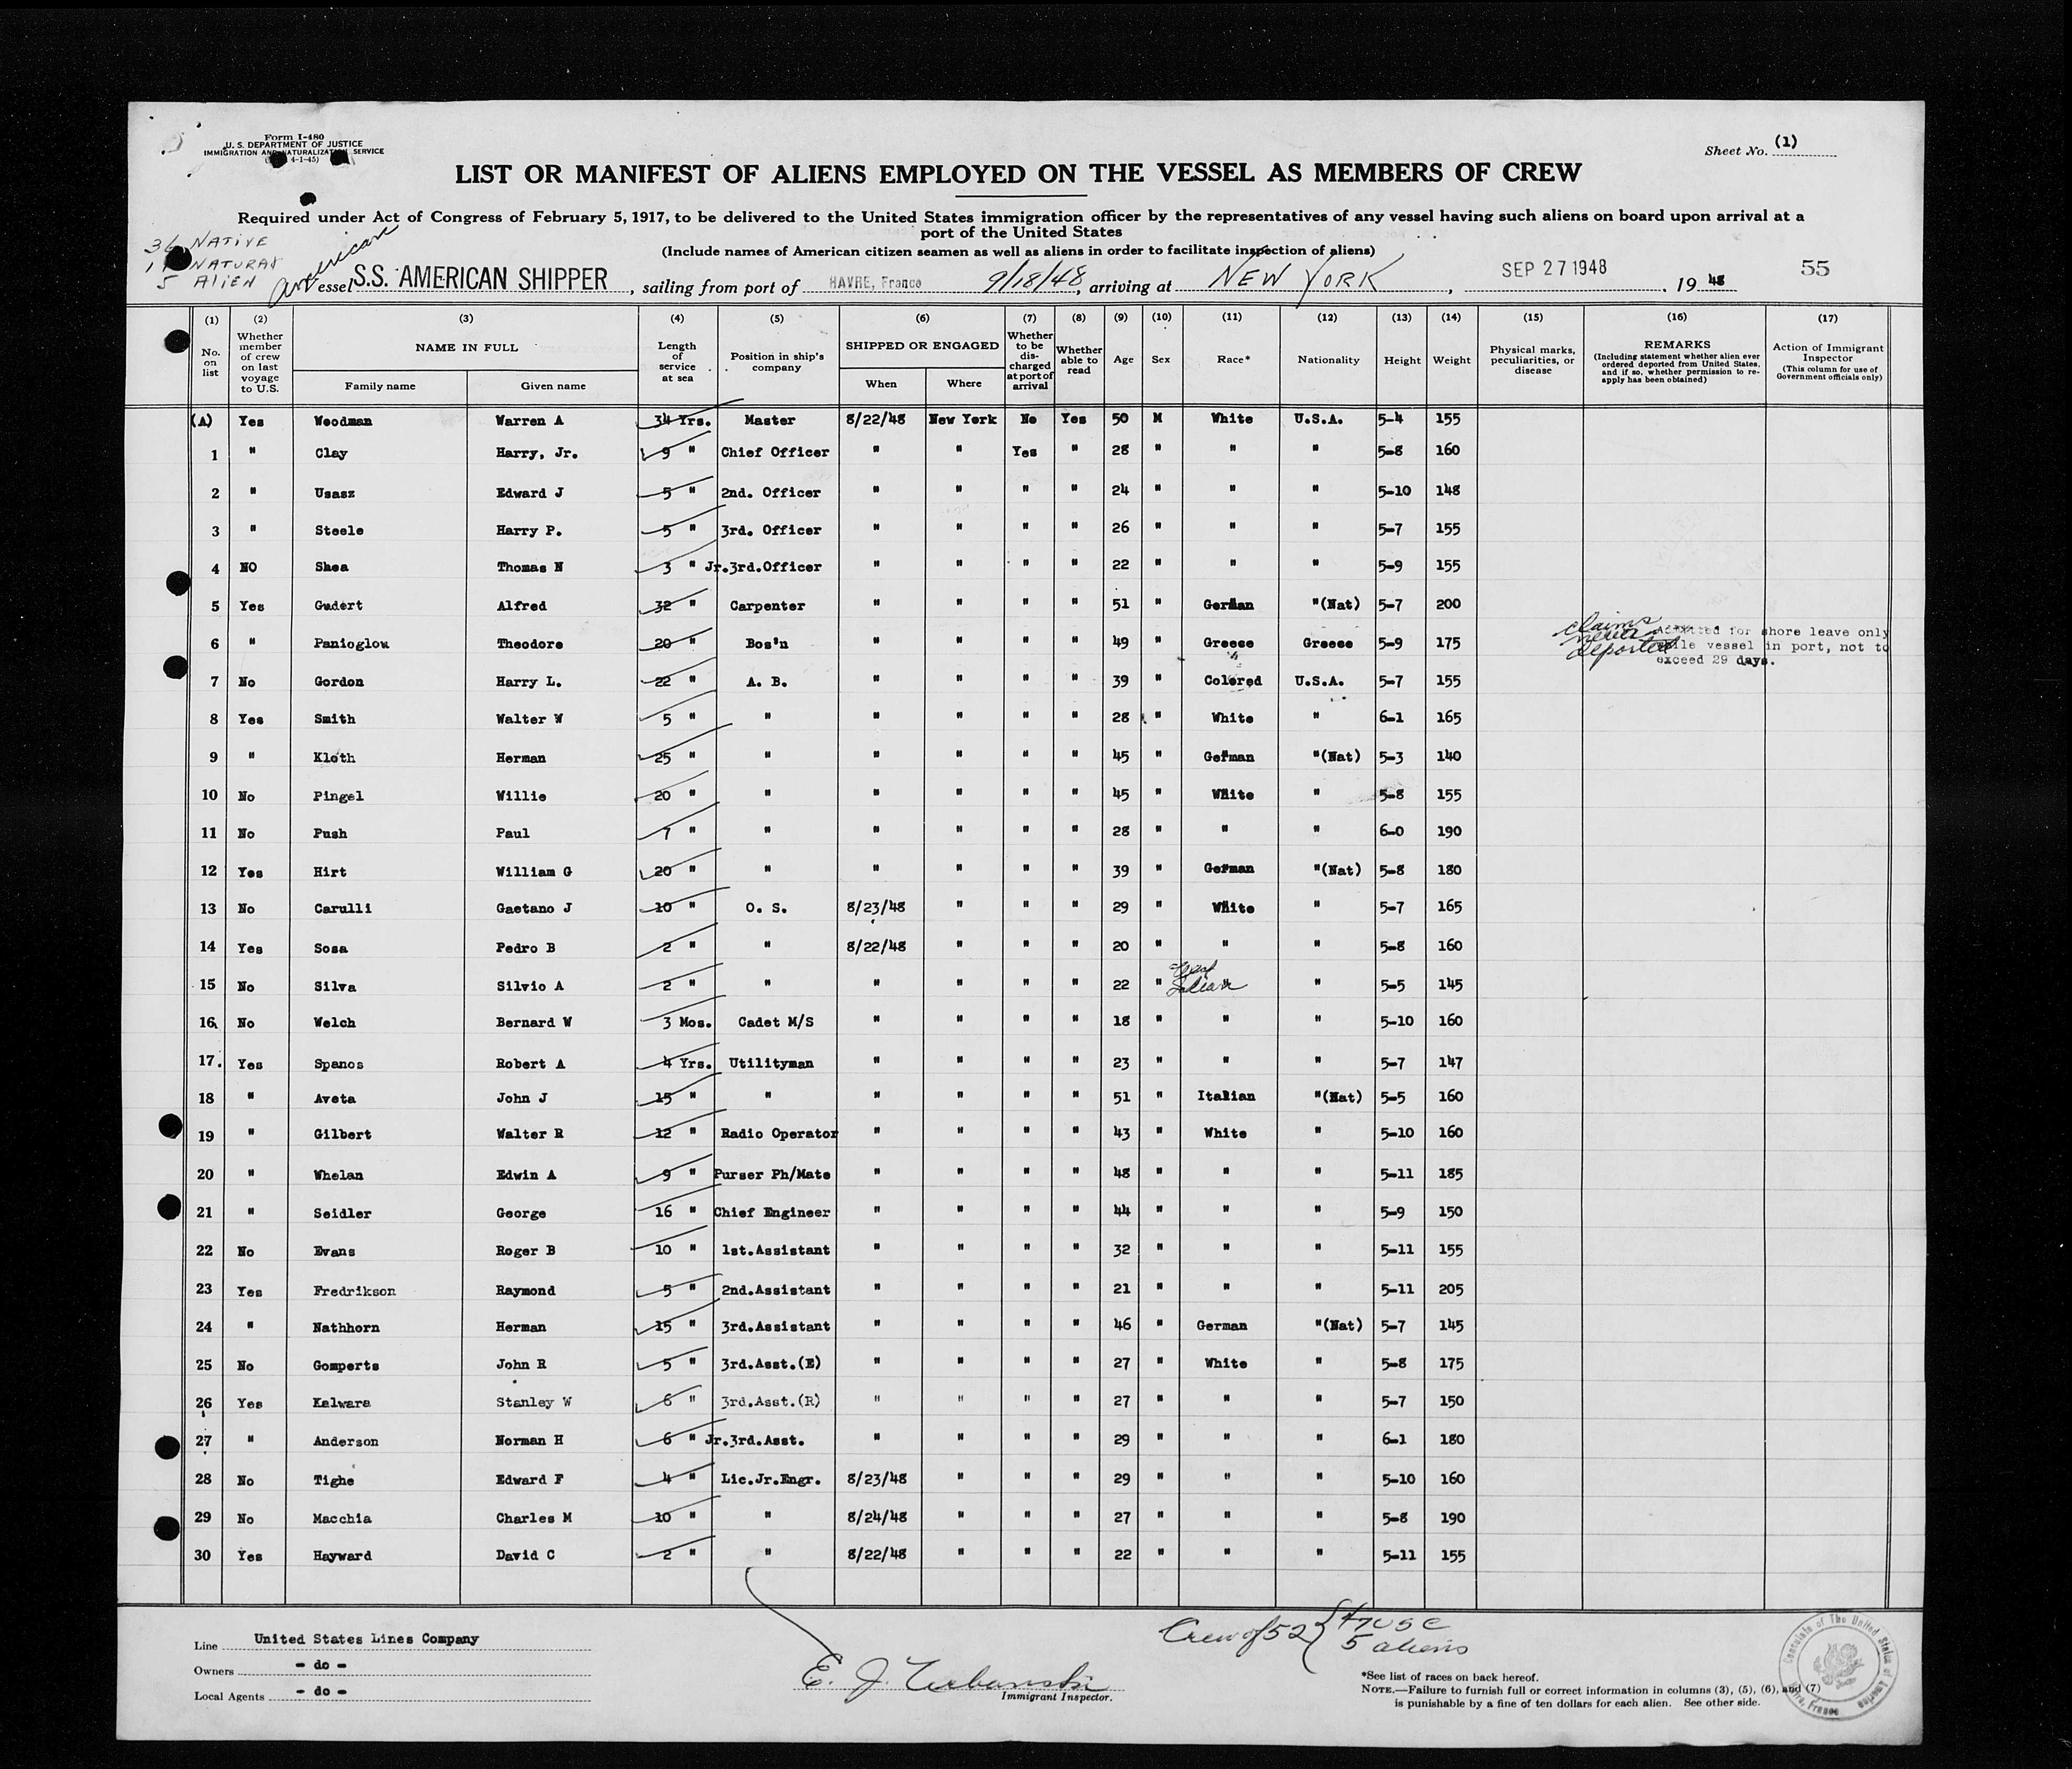 Form I-480
U. S. DEPARTMENT OF JUSTICE
IMMIGRATION AND NATURALIZATION SERVICE
4-1-45)
Sheet No. (1)
LIST OR MANIFEST OF ALIENS EMPLOYED ON THE VESSEL AS MEMBERS OF CREW
Required under Act of Congress of February 5, 1917, to be delivered to the United States immigration officer by the representatives of any vessel having such aliens on board upon arrival at a
port of the United States
(Include names of American citizen seamen as well as aliens in order to facilitate inspection of aliens)
36 NATIVE
NATURAL
5 ALIEN
American
Vessel S.S. AMERICAN SHIPPER, sailing from port of HAVRE, France 9/18/48, arriving at NEW YORK, SEP 27 1948, 19 48 55
(1) (2) (3) (4) (5) (6) (7) (8) (9) (10) (11) (12) (13) (14) (15) (16) (17)
No. on list Whether member of crew on last voyage to U.S. NAME IN FULL Family name Given name Length of service at sea Position in ship's company SHIPPED OR ENGAGED When Where Whether to be discharged at port of arrival Whether able to read Age Sex Race* Nationality Height Weight Physical marks, peculiarities, or disease REMARKS (Including statement whether alien ever ordered deported from United States, and if so, whether permission to reapply has been obtained) Action of Immigrant Inspector (This column for use of Government officials only)
(A) Yes Woodman Warren A 34 Yrs. Master 8/22/48 New York No Yes 50 M White U.S.A. 5-4 155
1 " Clay Harry, Jr. 9 " Chief Officer " " Yes " 28 " " " 5-8 160
2 " Usasz Edward J 5 " 2nd. Officer " " " " 24 " " " 5-10 148
3 " Steele Harry P. 5 " 3rd. Officer " " " " 26 " " " 5-7 155
4 NO Shea Thomas N 3 " Jr.3rd.Officer " " " " 22 " " " 5-9 155
5 Yes Gudert Alfred 32 " Carpenter " " " " 51 " German "(Nat) 5-7 200
6 " Panioglou Theodore 20 " Bos'n " " " " 49 " Greece Greece 5-9 175 claims never deported Admitted for shore leave only
while vessel in port, not to
exceed 29 days.
7 No Gordon Harry L. 22 " A. B. " " " " 39 " Colored U.S.A. 5-7 155
8 Yes Smith Walter W 5 " " " " " " 28 " White " 6-1 165
9 " Kloth Herman 25 " " " " " " 45 " German "(Nat) 5-3 140
10 No Pingel Willie 20 " " " " " " 45 " White " 5-8 155
11 No Push Paul 7 " " " " " " 28 " " " 6-0 190
12 Yes Hirt William G 20 " " " " " " 39 " German "(Nat) 5-8 180
13 No Carulli Gaetano J 10 " O. S. 8/23/48 " " " 29 " White " 5-7 165
14 Yes Sosa Pedro B 2 " " 8/22/48 " " " 20 " " " 5-8 160
15 No Silva Silvio A 2 " " " " " " 22 " " 5-5 145
16 No Welch Bernard W 3 Mos. Cadet M/S " " " " 18 " " " 5-10 160
17. Yes Spanos Robert A 4 Yrs. Utilityman " " " " 23 " " " 5-7 147
18 " Aveta John J 15 " " " " " " 51 " Italian "(Nat) 5-5 160
19 " Gilbert Walter R 12 " Radio Operator " " " " 43 " White " 5-10 160
20 " Whelan Edwin A 9 " Purser Ph/Mate " " " " 48 " " " 5-11 185
21 " Seidler George 16 " Chief Engineer " " " " 44 " " " 5-9 150
22 No Evans Roger B 10 " 1st.Assistant " " " " 32 " " " 5-11 155
23 Yes Fredrikson Raymond 5 " 2nd.Assistant " " " " 21 " " " 5-11 205
24 " Nathhorn Herman 15 " 3rd.Assistant " " " " 46 " German "(Nat) 5-7 145
25 No Gomperts John R 5 " 3rd.Asst.(E) " " " " 27 " White " 5-8 175
26 Yes Kalwara Stanley W 6 " 3rd.Asst.(R) " " " " 27 " " " 5-7 150
27 " Anderson Norman H 6 " Jr.3rd.Asst. " " " " 29 " " " 6-1 180
28 No Tighe Edward F 4 " Lic.Jr.Engr. 8/23/48 " " " 29 " " " 5-10 160
29 No Macchia Charles M 10 " " 8/24/48 " " " 27 " " " 5-8 190
30 Yes Hayward David C 2 " " 8/22/48 " " " 22 " " " 5-11 155
Line United States Lines Company
Owners - do -
Local Agents - do -
E. J. Urbanski
Immigrant Inspector.
Crew of 52 { 47 USC
5 aliens
*See list of races on back hereof.
NOTE.—Failure to furnish full or correct information in columns (3), (5), (6), and (7)
is punishable by a fine of ten dollars for each alien. See other side.
Consulate of The United States of America
Havre, France